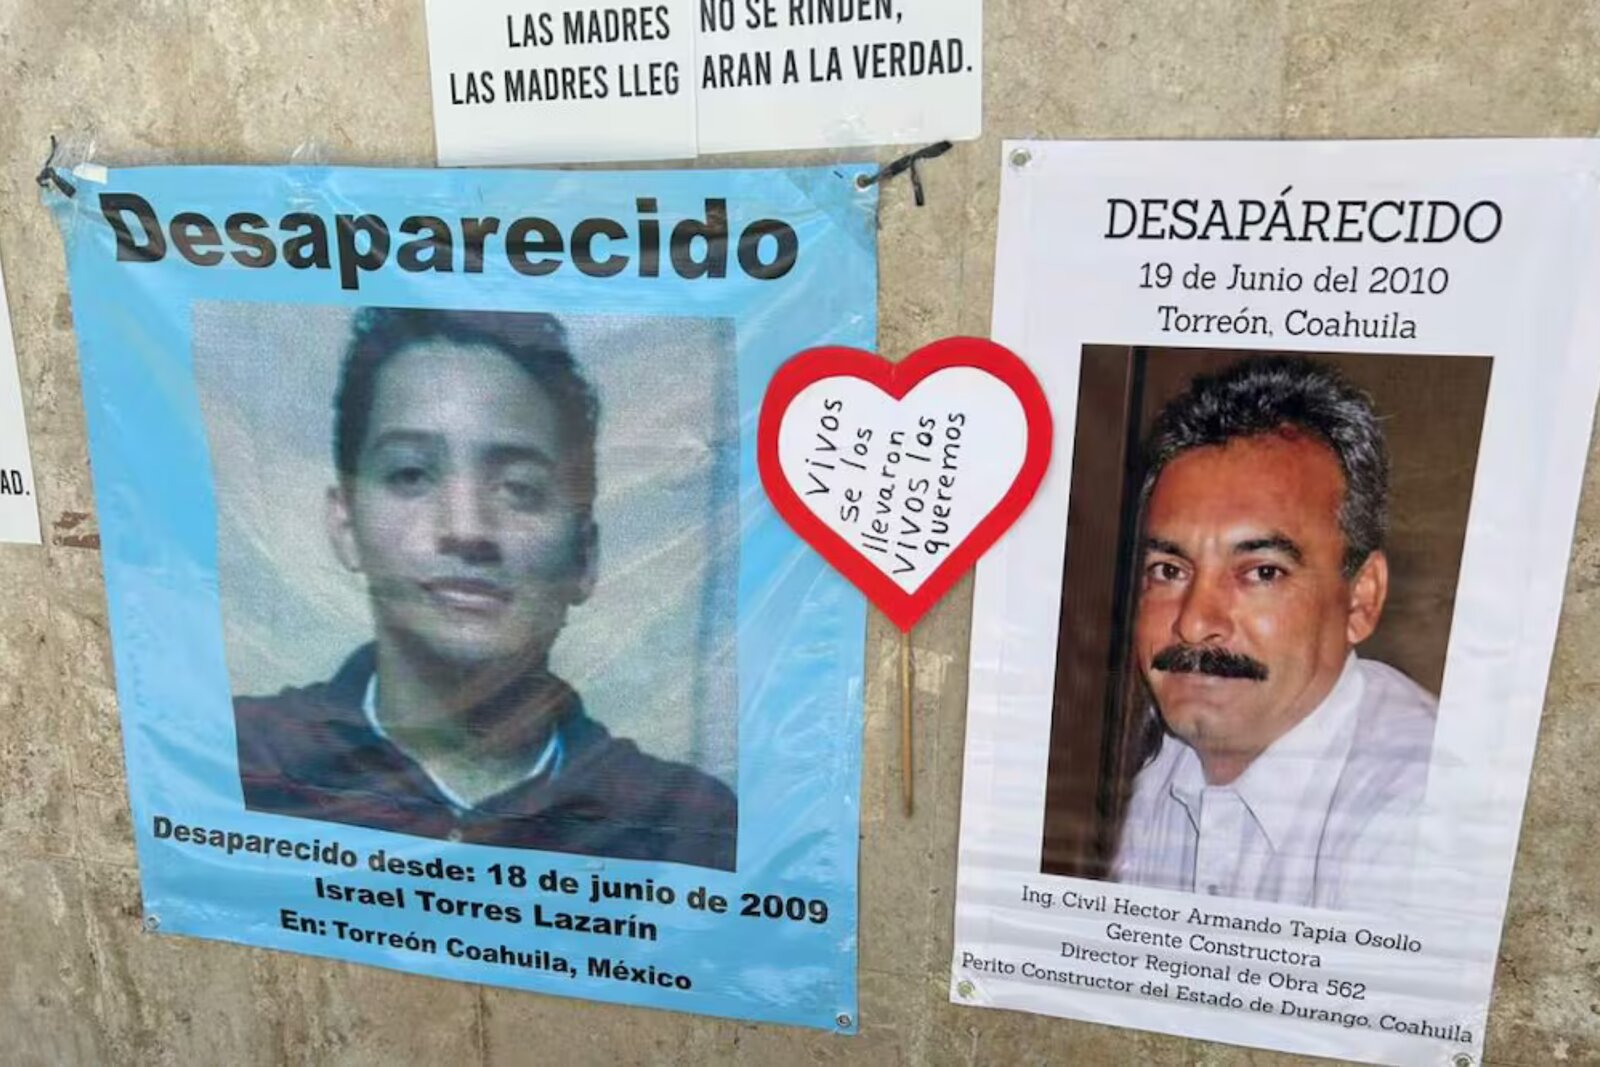 LAS MADRES NO SE RINDEN,
LAS MADRES LLEGARAN A LA VERDAD.
AD.
Desaparecido
Desaparecido desde: 18 de junio de 2009
Israel Torres Lazarín
En: Torreón Coahuila, México
Vivos
se los
llevaron
vivos los
queremos
DESAPÁRECIDO
19 de Junio del 2010
Torreón, Coahuila
Ing. Civil Hector Armando Tapia Osollo
Gerente Constructora
Director Regional de Obra 562
Perito Constructor del Estado de Durango, Coahuila